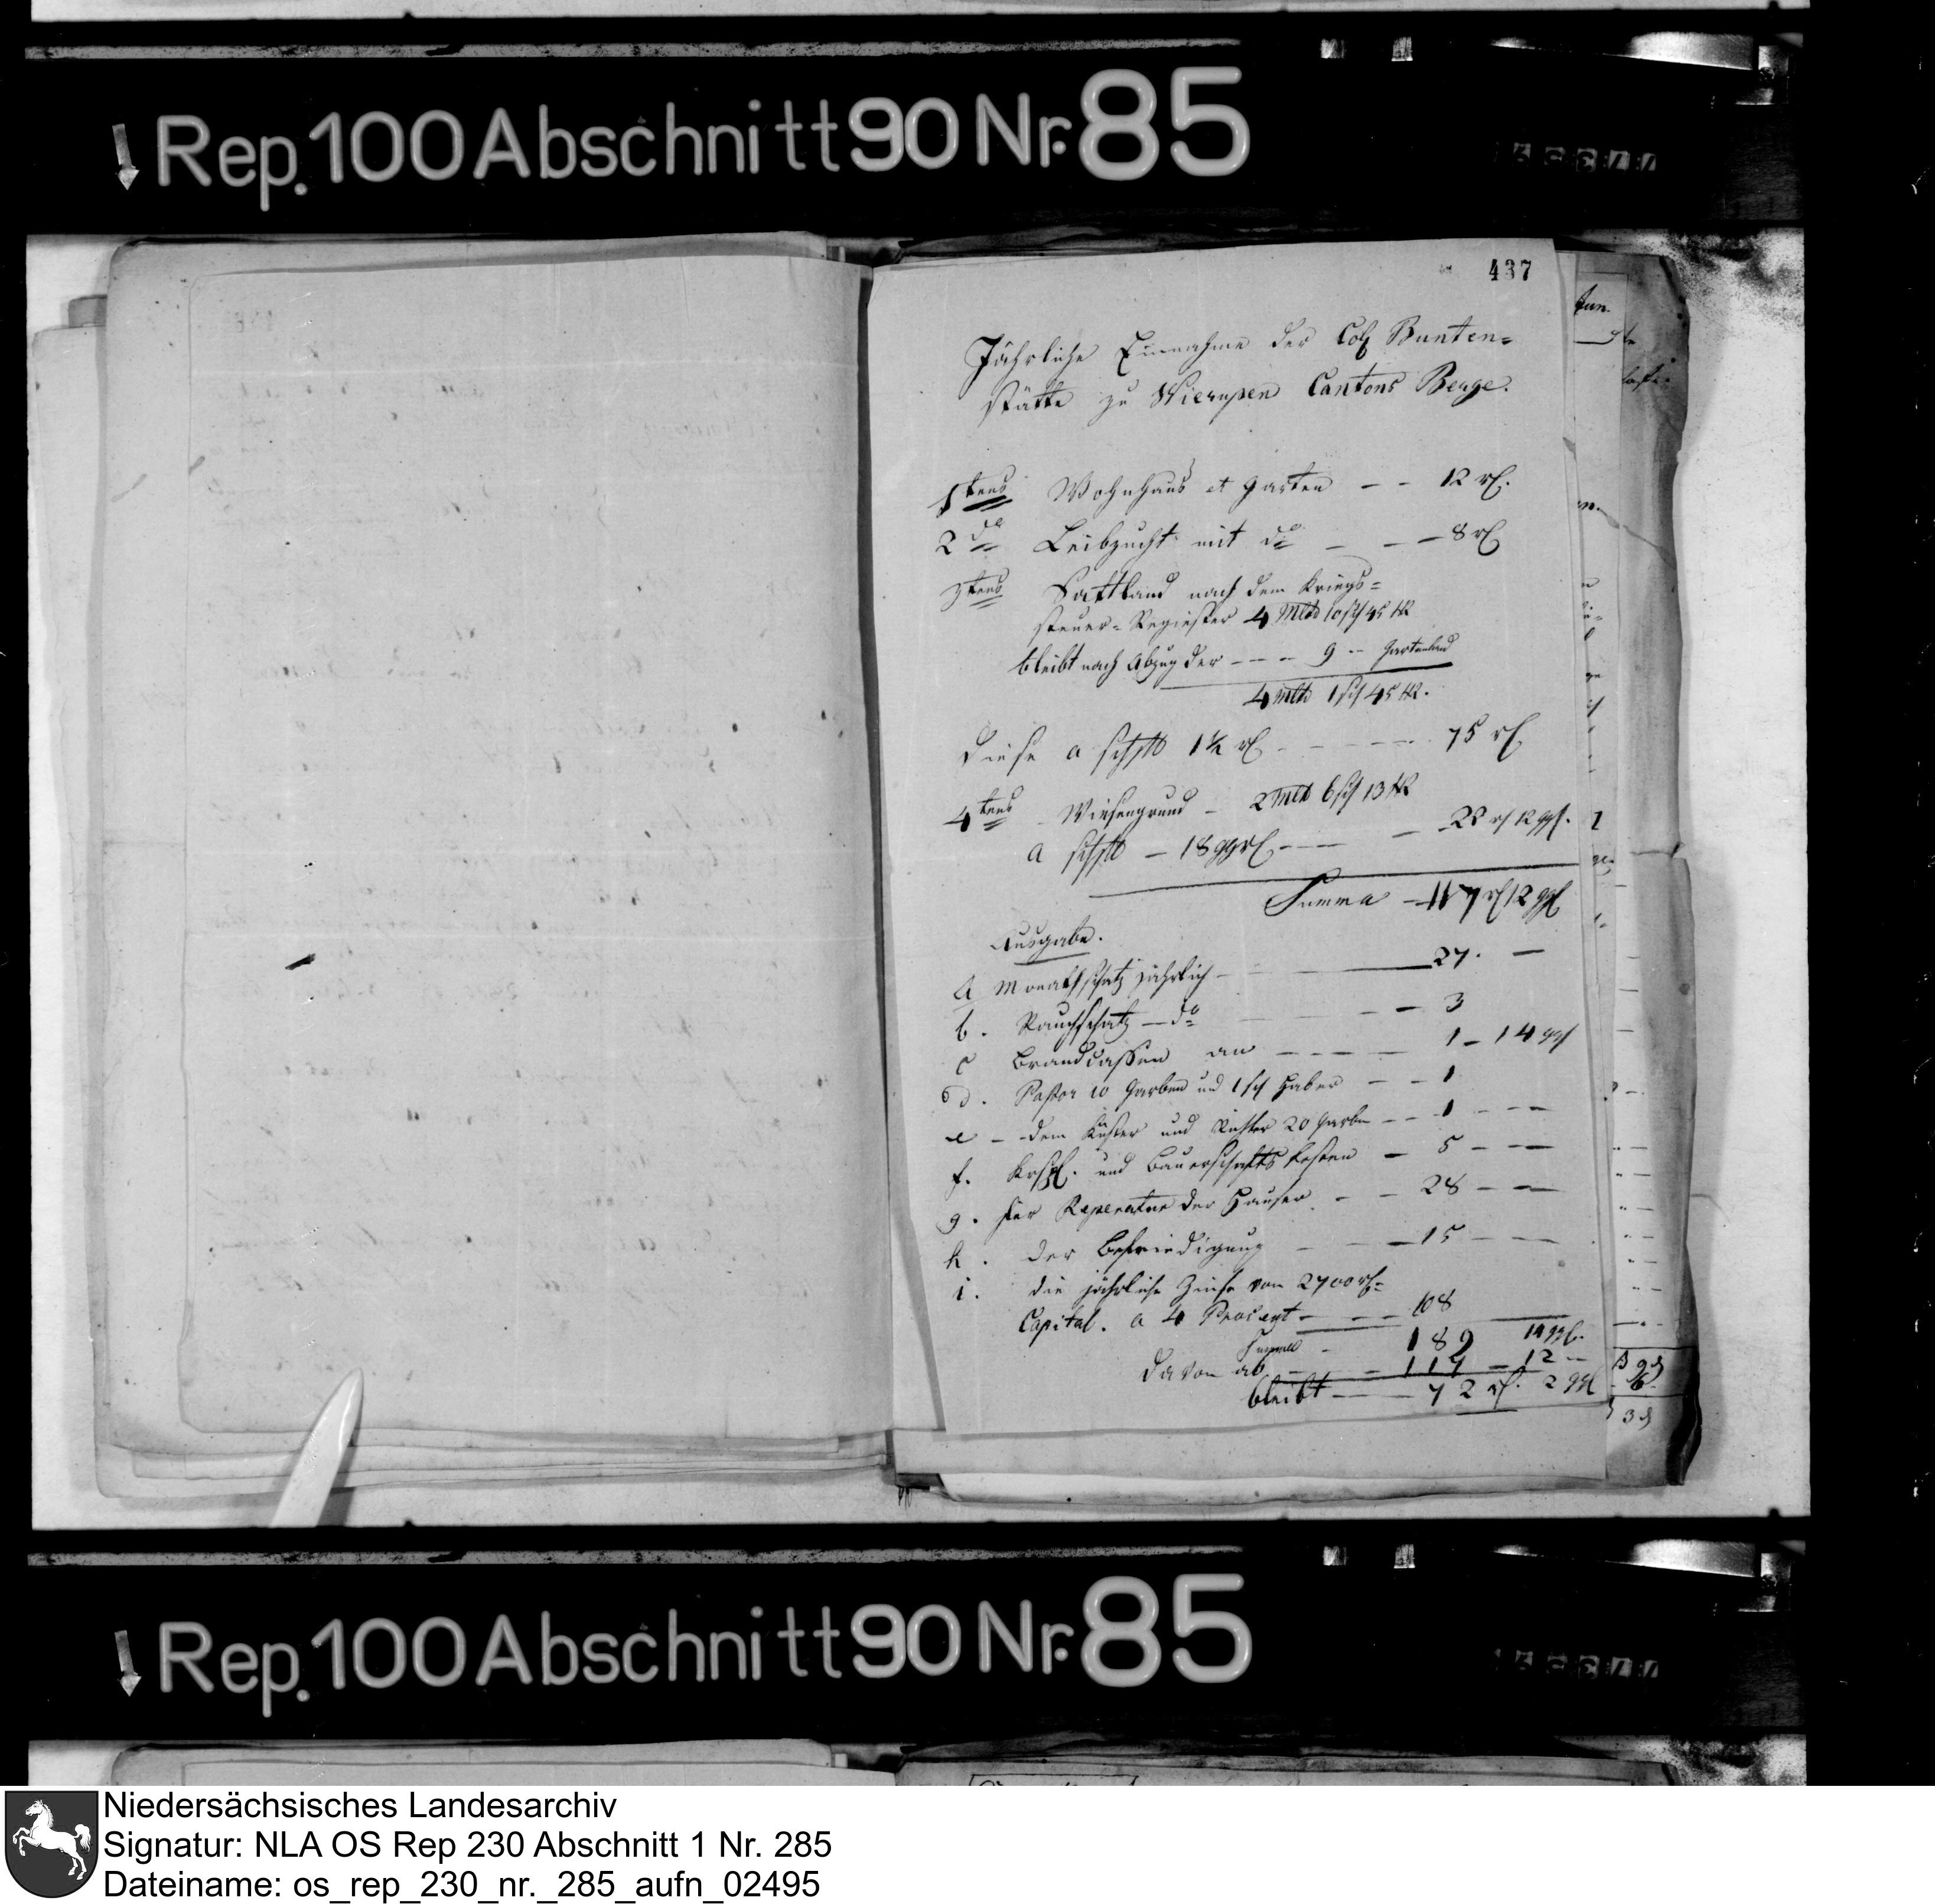 Rep. 100 Abschnitt 90 Nr. 85
437
Jährliche Einnahme der Col Bunten=
stätte zu Wierupen Cantons Berge.
1tens Wohnhaus et Garten – – 12 rl.
2 do Leibzucht mit do – – – 8 rl
3tens Saatland nach dem Kriegs=
steuer=Regiester 4 Mltr 10 sch 45 R
bleibt nach Abzug der – – – 9 – – Gartenland
4 Mltr 1 sch 45 R.
diese a schfl 1½ rl – – – – 75 rl
4tens Wiesengrund – 2 Mltr 6 sch 13 R
a schfl – 18 ggrl. – – – – 22 rl 12 ggl.
Summa – 117 rl 12 ggl
Ausgabe.
a Monathschatz jährlich – – 27. –
b. Rauchschatz – do – – – 3
c Brandcassen an – – – – 1 – 14 ggl
d. Pastor 10 Garben und 1 sch Haber – – 1
e – dem Küster und 20 Garben – – 1 – – –
f. Krspl. und Bauerschafts kosten – 5 – – –
g. für Reperatur der Hauser – – 28 – – –
h. der Befriedigung – – 15 – – –
i. die jährliche Zinse von 2700 rl=
Capital. a 4 Procent – – – 108
Summa – 189 14 ggl.
davon ab – – – 117 – 12 –
bleibt – – – 72 rl. 2 ggl
Rep. 100 Abschnitt 90 Nr. 85
Niedersächsisches Landesarchiv
Signatur: NLA OS Rep 230 Abschnitt 1 Nr. 285
Dateiname: os_rep_230_nr._285_aufn_02495